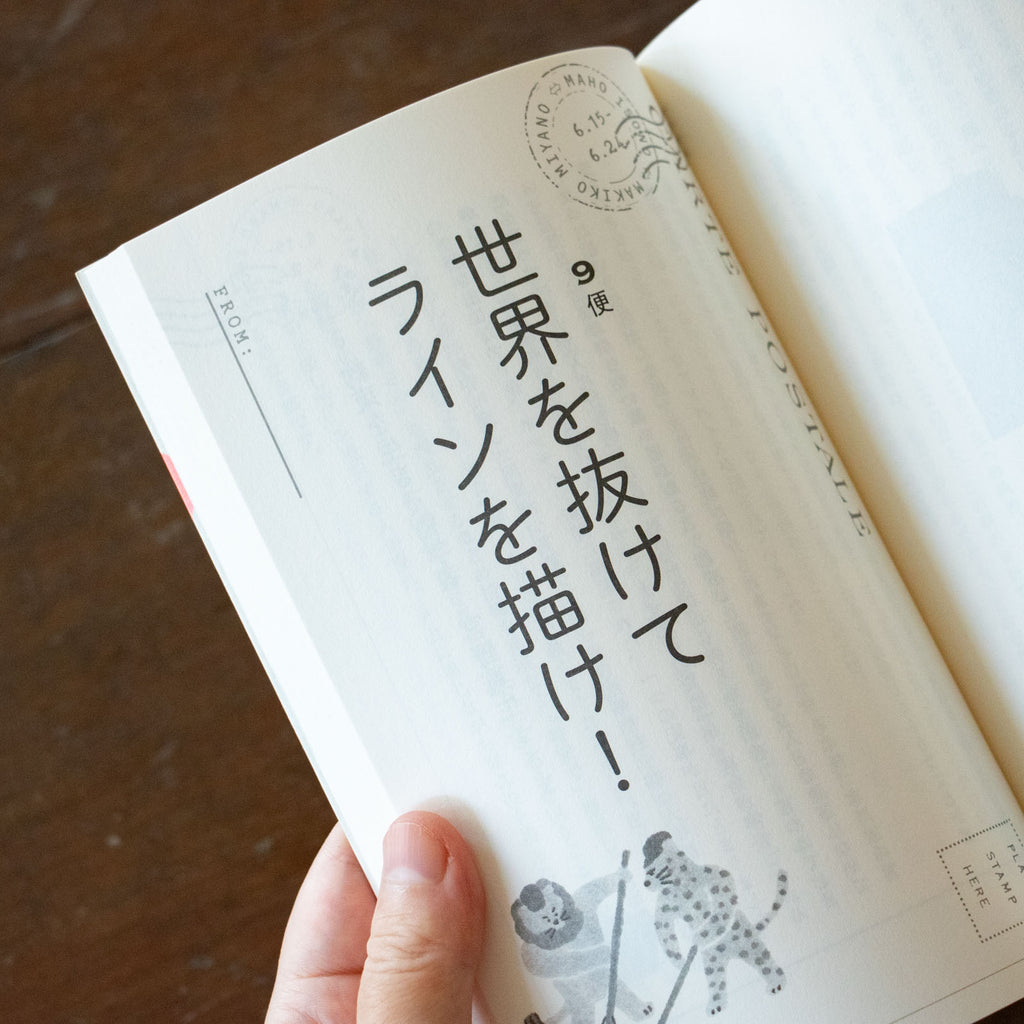 MAKIKO MIYANO ⇔ MAHO ISONO
6.15-
6.24
CARTE POSTALE
9便
世界を抜けて
ラインを描け!
FROM:
STAMP
HERE